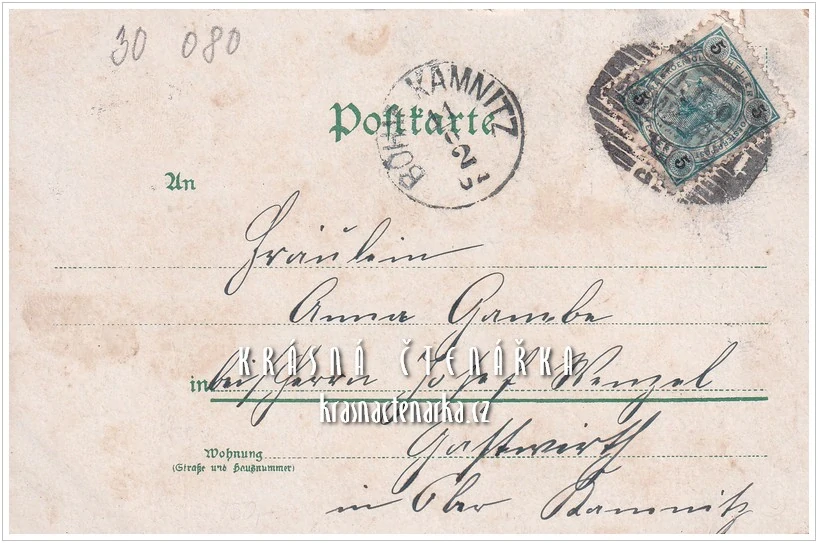 30 080
Postkarte
BÖHM. KAMNITZ
5 HELLER 5
5 5
An
Fräulein
Anna Gambe
KRÁSNÁ ČTENÁŘKA
in bei Herrn Josef Wenzel
krasnactenarka.cz
Gastwirth
Wohnung
(Straße und Hausnummer)
in Ober Kamnitz